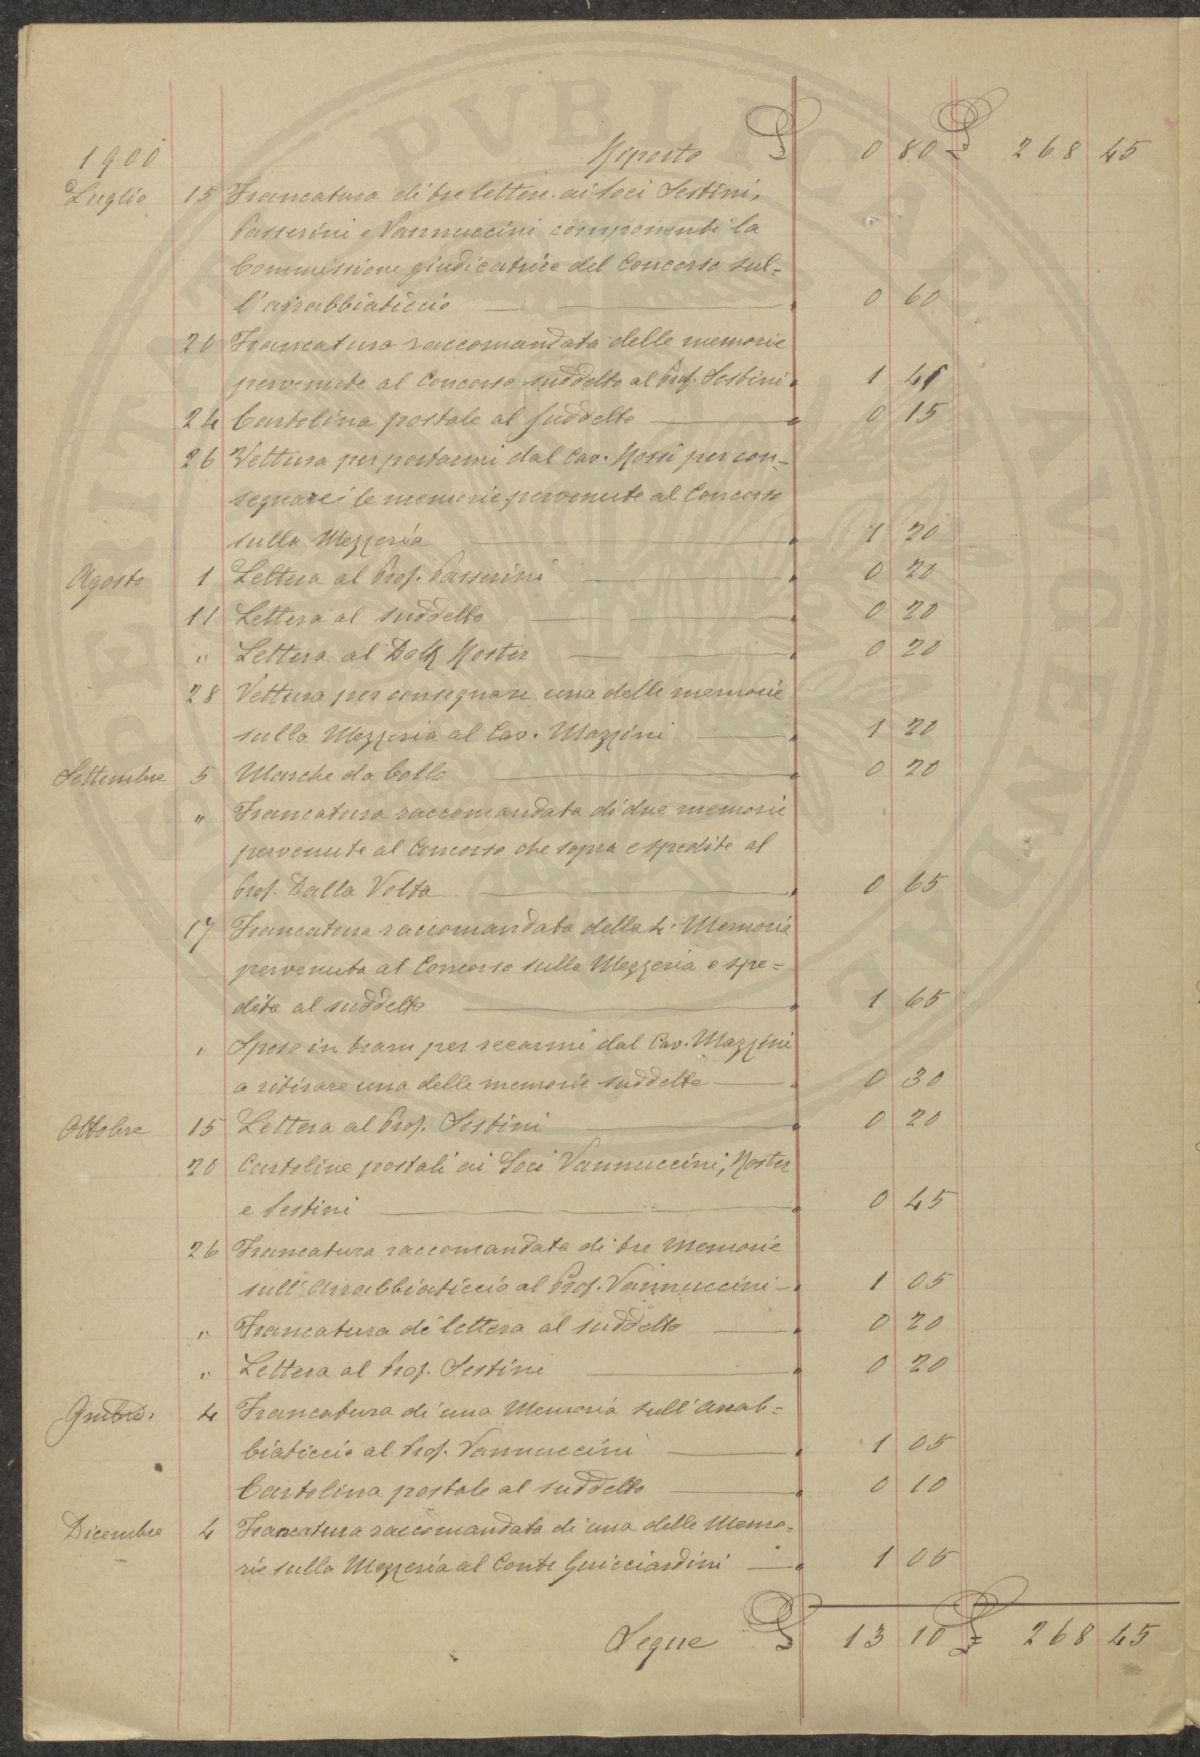 1900 Riporto £ 0 80 £ 268 45
Luglio 15 Francatura di tre lettere ai Soci Sestini,
Passerini e Vannuccini componenti la
Commissione giudicatrice del Concorso sul=
l'arrabbiaticcio 0 60
20 Francatura raccomandata delle memorie
pervenute al Concorso suddetto al Prof. Sestini 1 45
24 Cartolina postale al suddetto 0 15
26 Vettura per portarmi dal Cav. Rossi per con=
segnare le memorie pervenute al Concorso
sulla Mezzeria 1 20
Agosto 1 Lettera al Prof. Passerini 0 20
11 Lettera al suddetto 0 20
" Lettera al Dott Roster 0 20
28 Vettura per consegnare una delle memorie
sulla Mezzeria al Cav. Mazzini 1 20
Settembre 5 Marche da bollo 0 20
" Francatura raccomandata di due memorie
pervenute al Concorso che sopra e spedite al
Prof. Dalla Volta 0 65
17 Francatura raccomandata della 4ª Memoria
pervenuta al Concorso sulla Mezzeria e spe=
dita al suddetto 1 65
" Spese in tram per recarmi dal Cav. Mazzini
a ritirare una delle memorie suddette 0 30
Ottobre 15 Lettera al Prof. Sestini 0 20
20 Cartoline postali ai Soci Vannuccini, Roster
e Sestini 0 45
26 Francatura raccomandata di tre Memorie
sull'Arrabbiaticcio al Prof. Vannuccini 1 05
" Francatura di lettera al suddetto 0 20
" Lettera al Prof. Sestini 0 20
4 Francatura di una Memoria sull'Arrab=
biaticcio al Prof. Vannuccini 1 05
Cartolina postale al suddetto 0 10
Dicembre 4 Francatura raccomandata di una delle Memo=
rie sulla Mezzeria al Conte Guicciardini 1 05
Segue £ 13 10 £ 268 45